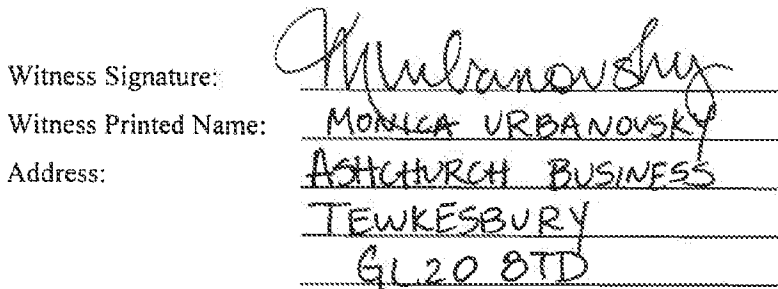 Witness Signature: MUrbanovsky
Witness Printed Name: MONICA URBANOVSKY
Address: ASHCHURCH BUSINESS
TEWKESBURY
GL20 8TD